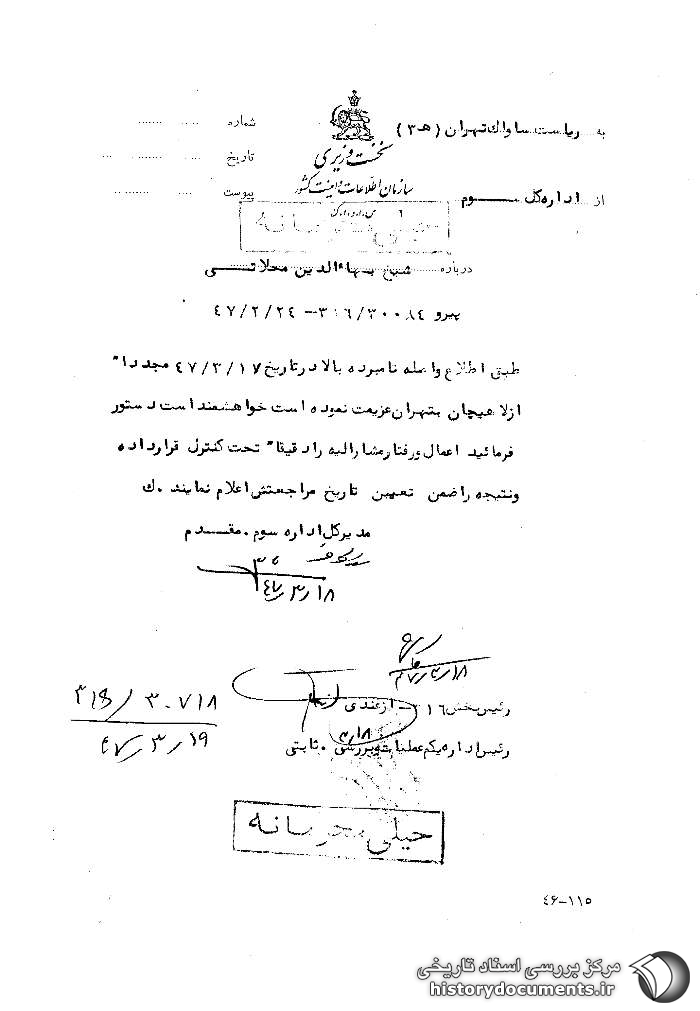 به ریاست ساواک تهران (هـ ۳)
شماره
نخست وزیری
تاریخ
سازمان اطلاعات و امنیت کشور
از اداره کل سوم
پیوست
درباره شیخ بهاءالدین محلاتی
پیرو ۳۱۶/۳۰۰۸۴ – ۴۷/۲/۲۴
طبق اطلاع واصله نامبرده بالا در تاریخ ۴۷/۳/۱۷ مجددا"
از لاهیجان بتهران عزیمت نموده است خواهشمند است دستور
فرمائید اعمال و رفتار مشارالیه را دقیقا" تحت کنترل قرار داده
و نتیجه را ضمن تعیین تاریخ مراجعتش اعلام نمایند. ک
مدیر کل اداره سوم . مقدم
۴۷/۳/۱۸
۴۷/۳/۱۸
رئیس بخش ۳۱۶ ازغندی
۳۱۶/۳۰۷۱۸
۴۷/۳/۱۹
۳/۱۸
رئیس اداره یکم عملیات و بررسی . ثابتی
خیلی محرمانه
۴۶-۱۱۵
مرکز بررسی اسناد تاریخی
historydocuments.ir